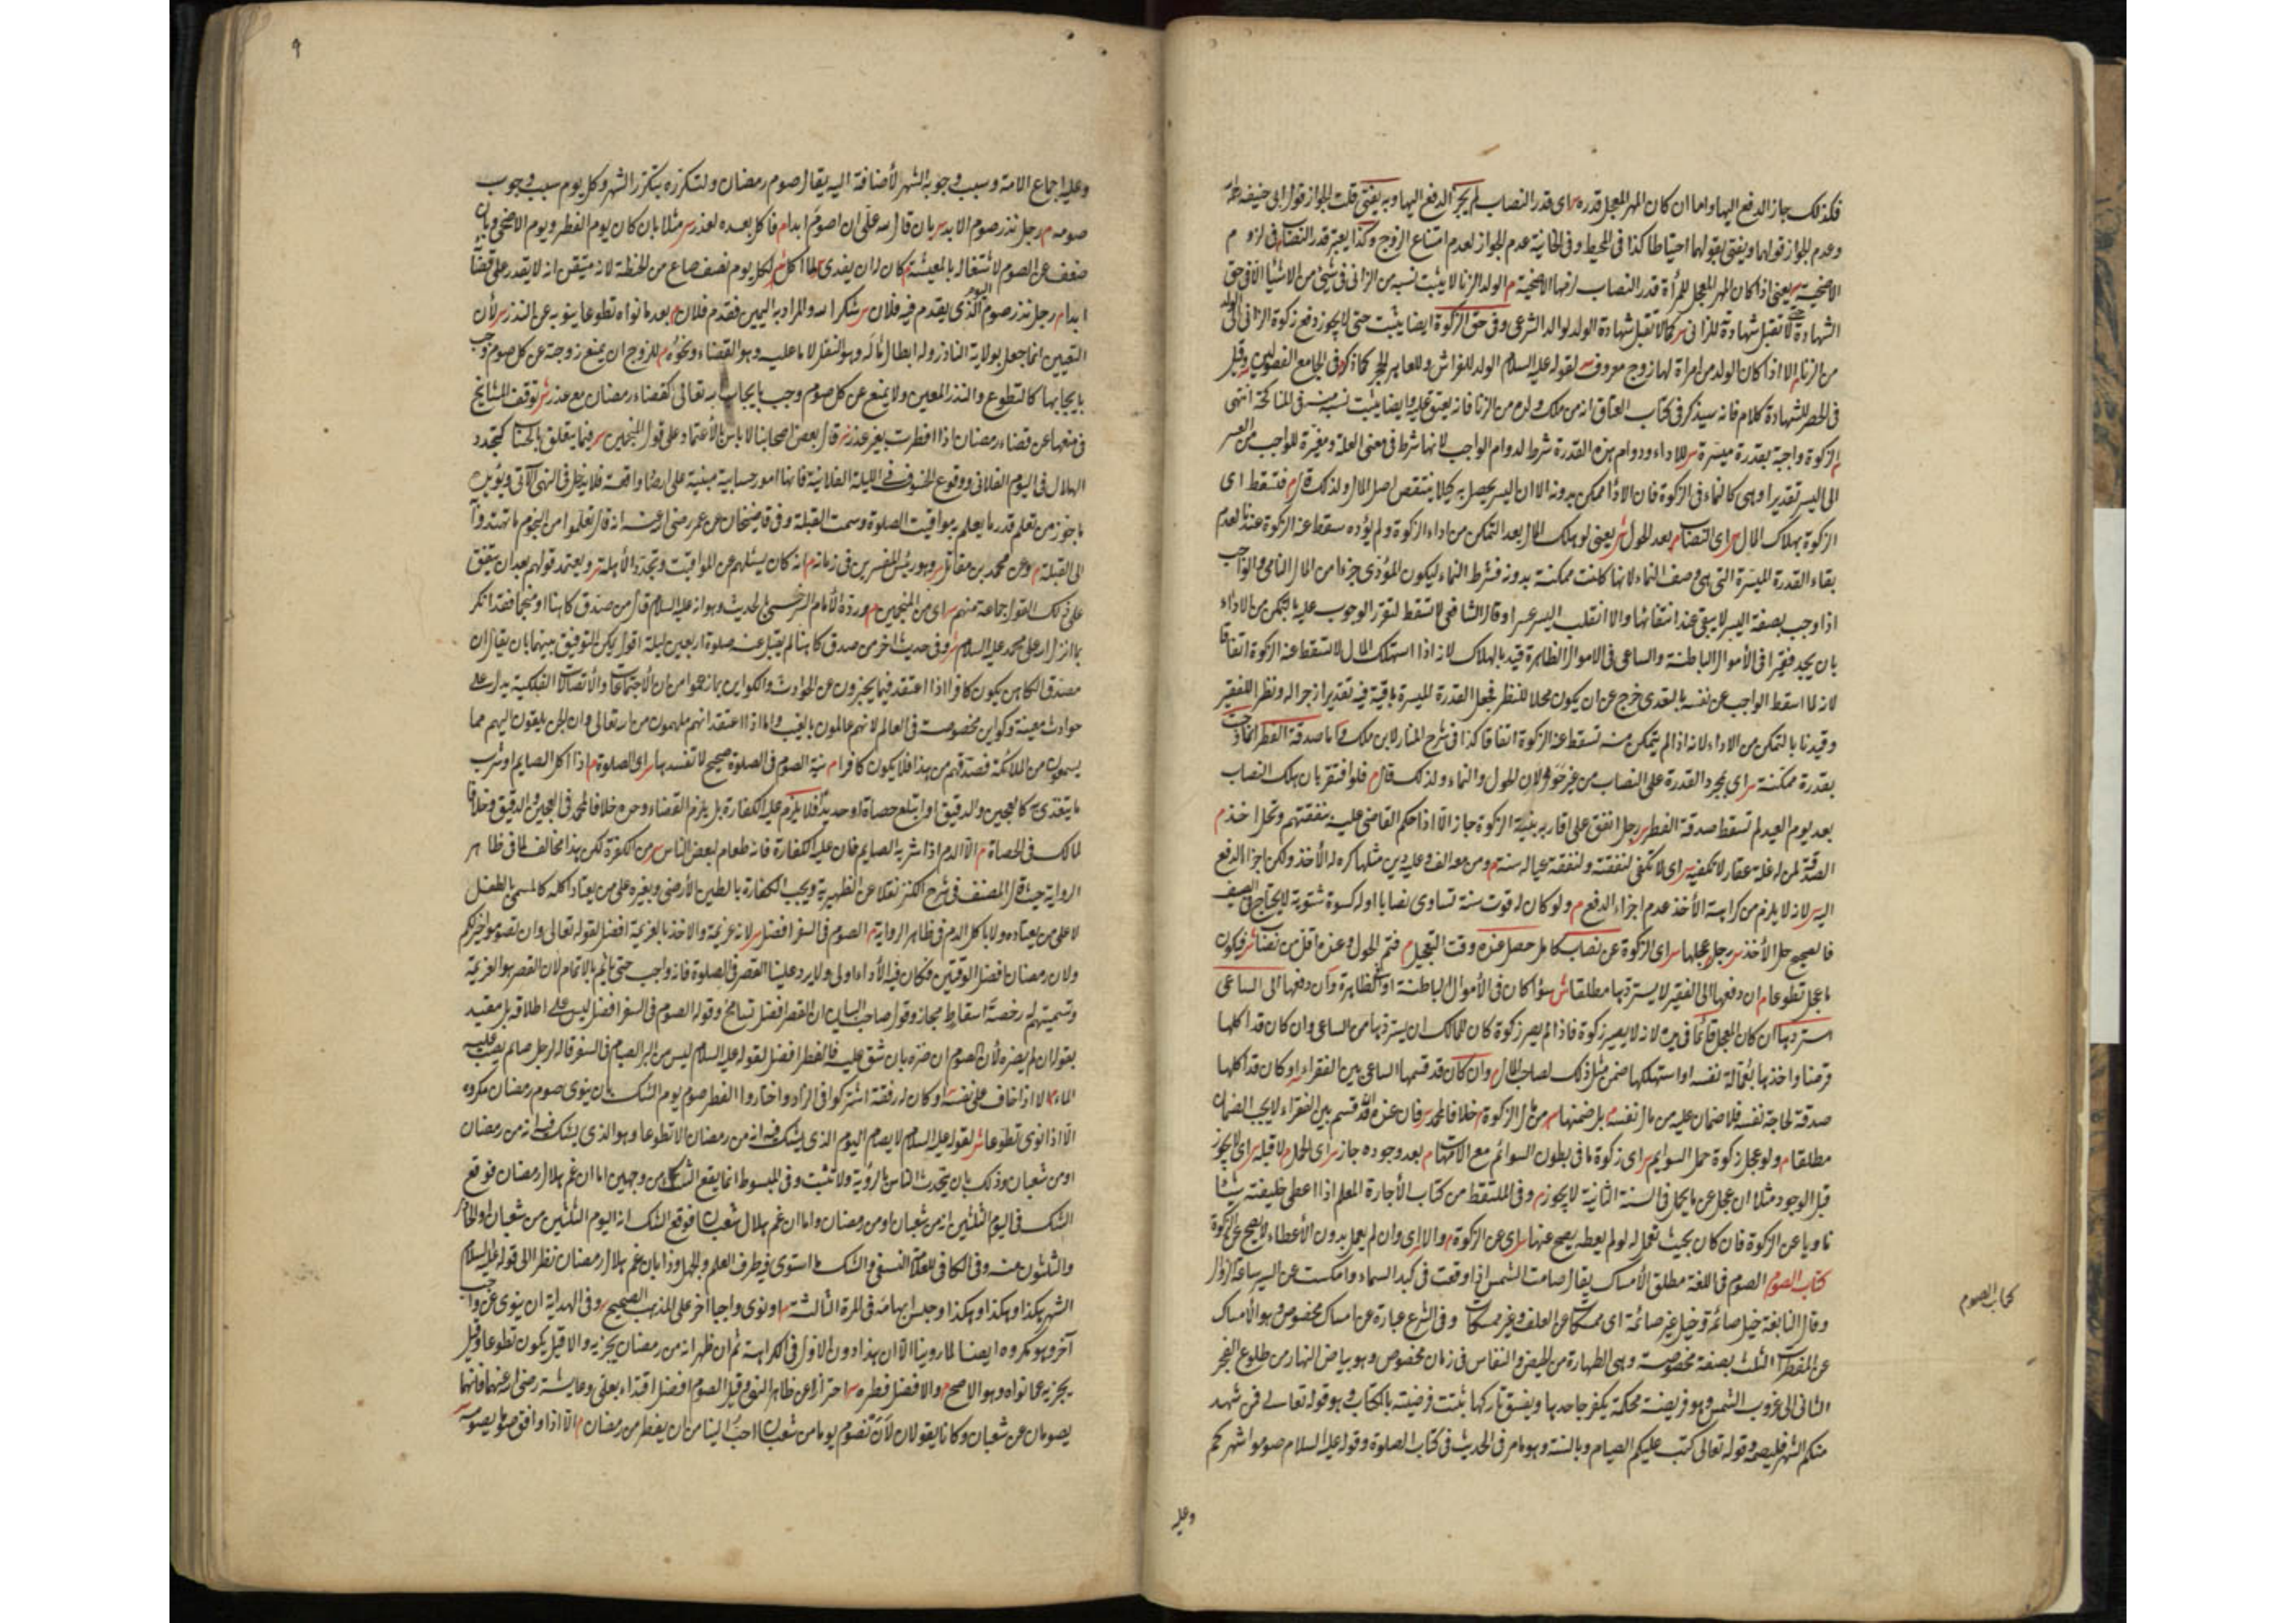 فكذلك جاز الدفع اليها واما ان كان المهر المعجل قدره اى قدر النصاب لم يجز الدفع اليها وبه يفتى قلت الجواز قول ابى حنيفة
وعدم الجواز قولهما ويفتى بقولهما احتياطا كذا فى المحيط وفى الخانية عدم الجواز لعدم امتناع الزوج وكذا يعتبر قدر النصاب فى لزوم
الاضحية يعنى اذا كان المهر المعجل للمرأة قدر النصاب لزمها الاضحية م الولد الزنا لا يثبت نسبه من الزانى فى شىء من الاشياء الا فى حق
الشهادة لا تقبل شهادته للزانى كما لا تقبل شهادة الولد لوالد الشرعى وفى حق الزكوة ايضا يثبت حتى لا يجوز دفع زكوة الزانى الى الولد
من الزنا الا اذا كان الولد من امراة لها زوج معروف لقوله عليه السلام الولد للفراش وللعاهر الحجر كما ذكر فى الجامع الفصولين وقيل
فى الحصر للشهادة كلام فانه سيذكر فى كتاب العتاق انه من ملك ولده من الزنا فانه يعتق عليه وايضا يثبت نسبه منه فى المناكحة انتهى
م الزكوة واجبة بقدرة ميسرة للاداء ودوام هذه القدرة شرط لدوام الواجب لانها شرط فى معنى العلة ومغيرة للواجب من العسر
الى اليسر تقديرا وهى كالنماء فى الزكوة فان الاداء ممكن بدونه الا ان اليسر يحصل به كيلا ينتقص اصل المال ولذلك قال م فتسقط اى
الزكوة بهلاك المال اى النصاب م بعد الحول ش يعنى لو هلك المال بعد التمكن من اداء الزكوة ولم يؤده سقط عنه الزكوة عندنا لعدم
بقاء القدرة الميسرة التى هى وصف النماء لانها كانت ممكنة بدونه فشرط النماء ليكون المؤدى جزءا من المال النامى والواجب
اذا وجب بصفة اليسر لا يبقى عند انتفائها والا انقلب اليسر عسرا وقال الشافعى لا تسقط لتقرر الوجوب عليه بالتمكن من الاداء
بان يجد فقيرا فى الأموال الباطنة والساعى فى الاموال الظاهرة قيد بالهلاك لانه اذا استهلك المال لا تسقط عنه الزكوة اتفاقا
لانه لما اسقط الواجب عن نفسه بالتعدى خرج عن ان يكون محلا للنظر فجعل القدرة الميسرة باقية فيه تقديرا زجرا له ونظرا للفقير
وقيدنا بالتمكن من الاداء لانه اذا لم يتمكن منه تسقط عنه الزكوة اتفاقا كذا فى شرح المنار لابن ملك واما صدقة الفطر انما وجبت
بقدرة ممكنة اى بمجرد القدرة على النصاب من غير حولان الحول والنماء ولذلك قال م فلو افتقر بان هلك النصاب
بعد يوم العيد لم تسقط صدقة الفطر رجل انفق على اقاربه بنية الزكوة جاز الا اذا حكم القاضى عليه بنفقتهم وتحل اخذ م
الصدقة لمن له غلة عقار لا تكفيه اى لا تكفى لنفقته ولنفقة عياله سنة م ومن معه الف وعليه دين مثلها كره له الأخذ ولكن اجزا الدفع
اليه لانه لا يلزم من كراهة الأخذ عدم اجزاء الدفع م ولو كان له قوت سنة تساوى نصابا او له كسوة شتوية لا يحتاج فى الصيف
فالصحيح حل الأخذ رجل عجلها اى الزكوة عن نصاب كامل حصل عنده وقت التعجيل م فتم الحول وعنده اقل من نصاب فيكون
ما عجل تطوعا م ان دفعها الى الفقير لا يستردها مطلقا ش سواء كان فى الأموال الباطنة او الظاهرة وان دفعها الى الساعى
استردها ان كان المعجل قائما فى يده لانه لا يصير زكوة فاذا لم يصر زكوة كان للمالك ان يستردها من الساعى وان كان قد اكلها
قرضا واخذها بعمالة نفسه او استهلكها ضمن مثل ذلك لصاحب المال م وان كان قد قسمها الساعى بين الفقراء او كان قد اكلها
صدقة لحاجة نفسه فلا ضمان عليه من مال نفسه م بل ضمنها من مال الزكوة خلافا لمحمد فان عنده قد قسم بين الفقراء لا يجب الضمان
مطلقا م ولو عجل زكوة حمل السوايم اى زكوة ما فى بطون السوائم مع الامهات م بعد وجوده جاز اى الحمل م لا قبله اى لا يجوز
قبل الوجود مثلا ان عجل عن ما يحمل فى السنة الثانية لا يجوز م وفى الملتقط من كتاب الأجارة المعلم اذا اعطى خليفته شيئا
ناويا عن الزكوة فان كان بحيث تعمل له لو لم يعطه يصح عنها اى عن الزكوة م والا اى وان لم يعمل بدون الأعطاء لا يصح عن الزكوة
كتاب الصوم الصوم فى اللغة مطلق الأمساك يقال صامت الشمس اذا وقفت فى كبد السماء وامسكت عن السير ساعة الزوال
وقال النابغة خيل صائمة وخيل غير صائمة اى ممسكات عن العلف وغير ممسكات وفى الشرع عبارة عن امساك مخصوص وهو الامساك
عن المفطرات الثلث بصفة مخصوصة وهى الطهارة من الحيض والنفاس فى زمان مخصوص وهو بياض النهار من طلوع الفجر
الثانى الى غروب الشمس وهو فريضة محكمة يكفر جاحدها ويفسق تاركها ثبتت فرضيته بالكتاب وهو قوله تعالى فمن شهد
منكم الشهر فليصمه وقوله تعالى كتب عليكم الصيام وبالسنة وهو ما مر فى الحديث فى كتاب الصلوة وقوله عليه السلام صوموا شهركم
وعليه
كتاب الصوم
٩
وعليه اجماع الامة وسبب وجوبه الشهر لأضافته اليه يقال صوم رمضان ولتكرره بتكرر الشهر وكل يوم سبب وجوب
صومه م رجل نذر صوم الابد بان قال لله على ان اصوم ابدا م فاكل بعده لعذر مثلا بان كان يوم الفطر ويوم الاضحى وبان
ضعف عن الصوم لاشتغاله بالمعيشة كان له ان يفدى لما اكل لكل يوم نصف صاع من الحنطة لانه متيقن انه لا يقدر على قضائه
ابدا م رجل نذر صوم اليوم الذى يقدم فيه فلان شكرا لله والمراد به اليمين فقدم فلان بعد ما نواه تطوعا ينوبه عن النذر لأن
التعيين انما جعل بولاية الناذر وله ابطال ماله وهو النفل لا ما عليه وهو القضاء ونحوه م للزوج ان يمنع زوجته عن كل صوم وجب
بايجابها كالتطوع والنذر المعين ولا يمنع عن كل صوم وجب بايجاب الله تعالى كقضاء رمضان مع عذر ش توقف المشايخ
فى منعها عن قضاء رمضان اذا افطرت بغير عذر قال بعض اصحابنا لا باس بالأعتماد على قول المنجمين فيما يتعلق بالحساب كتجدد
الهلال فى اليوم الفلانى ووقوع الخسوف فى الليلة الفلانية فانها امور حسابية مبنية على ارصاد واقعة فلا يدخل فى النهى الآتى ويؤيده
ما جوز من تعلم قدر ما يعلم به مواقيت الصلوة وسمت القبلة وفى قاضيخان عن عمر رضى الله عنه انه قال تعلموا من النجوم ما تهتدوا
الى القبلة م وعن محمد بن مقاتل وهو رئيس المفسرين فى زمانه م انه كان يسئلهم عن المواقيت وتجدد الأهلة ويعتمد قولهم بعد ان يتفق
على ذلك القول جماعة منهم اى من المنجمين م ورده الأمام السرخسى لحديث وهو انه عليه السلام قال من صدق كاهنا او منجما فقد انكر
بما انزل الله على محمد عليه السلام وفى حديث اخر من صدق كاهنا لم يقبل عنه صلوة اربعين ليلة اقول يمكن التوفيق بينهما بان يقال ان
مصدق الكاهن يكون كافرا اذا اعتقد فيما يخبرون عن الحوادث والكواين بما زعموا من ان الأجتماعات والأتصالات الفلكية يدل على
حوادث معينة وكواين مخصوصة فى العالم لانهم عالمون بالغيب واما اذا اعتقد انهم ملهمون من الله تعالى وان الجن يلقون اليهم مما
يسمعون من الملائكة فصدقهم من هذا فلا يكون كافرا م نية الصوم فى الصلوة صحيح لا تفسدها اى الصلوة م اذا اكل الصايم او شرب
ما يتغذى به كالعجين والدقيق او ابتلع حصاة او حديدا فلا يلزم عليه الكفارة بل يلزم القضاء وحده خلافا لمحمد فى العجين والدقيق وخلافا
لمالك فى الحصاة م الا الدم اذا شربه الصايم فان عليه الكفارة فانه طعام لبعض الناس من الكفرة لكن هذا مخالف لما فى ظاهر
الرواية حيث قال المصنف فى شرح الكنز نقلا عن الظهيرية ويجب الكفارة بالطين الأرمنى وبغيره على من يعتاد اكله كالمسمى بالطفل
لا على من يعتاده ولا باكل الدم فى ظاهر الرواية م الصوم فى السفر افضل لانه عزيمة والاخذ بالعزيمة افضل لقوله تعالى وان تصوموا خير لكم
ولان رمضان افضل الوقتين فكان فيه الأداء اولى ولا يرد علينا القصر فى الصلوة فانه واجب حتى يأثم بالاتمام لان القصر هو العزيمة
وتسميتهم له رخصة اسقاط مجاز وقول صاحب ان القصر افضل تسامح وقوله الصوم فى السفر افضل ليس على اطلاقه بل مقيد
بقوله ان لم يضره لأن الصوم ان ضره بان شق عليه فالفطر افضل لقوله عليه السلام ليس من البر الصيام فى السفر قاله لرجل صائم يصب عليه
الماء م الا اذا خاف على نفسه او كان له رفقة اشتركوا فى الزاد واختاروا الفطر صوم يوم الشك بان ينوى صوم رمضان مكروه
الا اذا نوى تطوعا ش لقوله عليه السلام لا يصام اليوم الذى يشك فيه انه من رمضان الا تطوعا وهو الذى يشك فيه انه من رمضان
او من شعبان وذلك بان يتحدث الناس بالرؤية ولا تثبت وفى المبسوط انما يقع الشك من وجهين اما ان غم هلال رمضان فوقع
الشك فى اليوم الثلثين انه من شعبان او من رمضان واما ان غم هلال شعبان فوقع الشك انه اليوم الثلثين من شعبان او الحادى
والثلثون منه وفى الكافى للعلامة النسفى والشك ما استوى فيه طرف العلم والجهل وذا بان غم هلال رمضان نظرا الى قوله عليه السلام
الشهر هكذا وهكذا وهكذا وحبس ابهامه فى المرة الثالثة او نوى واجبا اخر على المذهب الصحيح وفى الهداية ان ينوى عن واجب
آخر وهو مكروه ايضا لما روينا الا ان هذا دون الاول فى الكراهة ثم ان ظهر انه من رمضان يجزيه والا قيل يكون تطوعا وقيل
يجزيه عما نواه وهو الاصح م والافضل فطره احترازا عن ظاهر النهى وقيل الصوم افضل اقتداء بعلى وعايشة رضى الله عنهما فانهما
يصومان عن شعبان وكانا يقولان لأن نصوم يوما من شعبان احب الينا من ان يفطر من رمضان م الا اذا وافق صوما يصومه